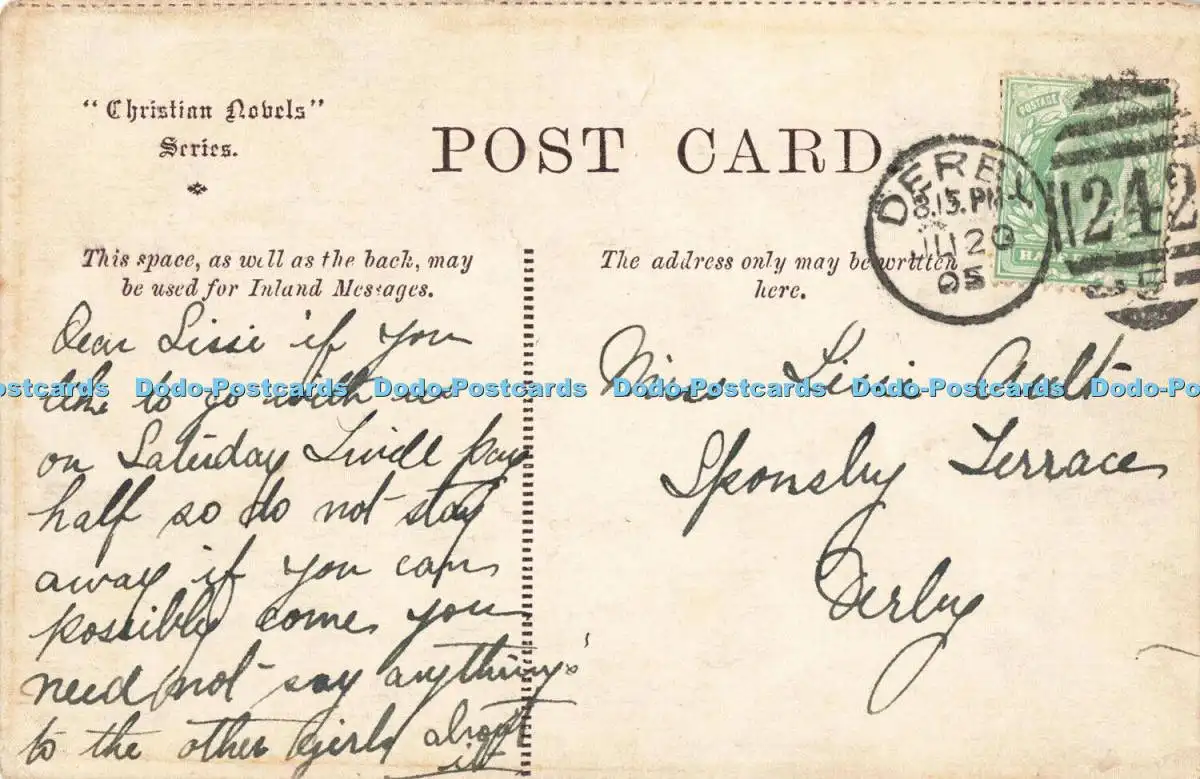 "Christian Novels"
Series.
POST CARD
This space, as well as the back, may
be used for Inland Messages.
The address only may be written
here.
DERBY
8.15.PM
20
05
242
POSTAGE
Dear Lissi if you
like to go with us
on Saturday I will pay
half so do not stay
away if you can
possibly come you
need not say anything
to the other girls about
it
Miss Lissi Ault
Sponsby Terrace
Derby
Dodo-Postcards Dodo-Postcards Dodo-Postcards Dodo-Postcards